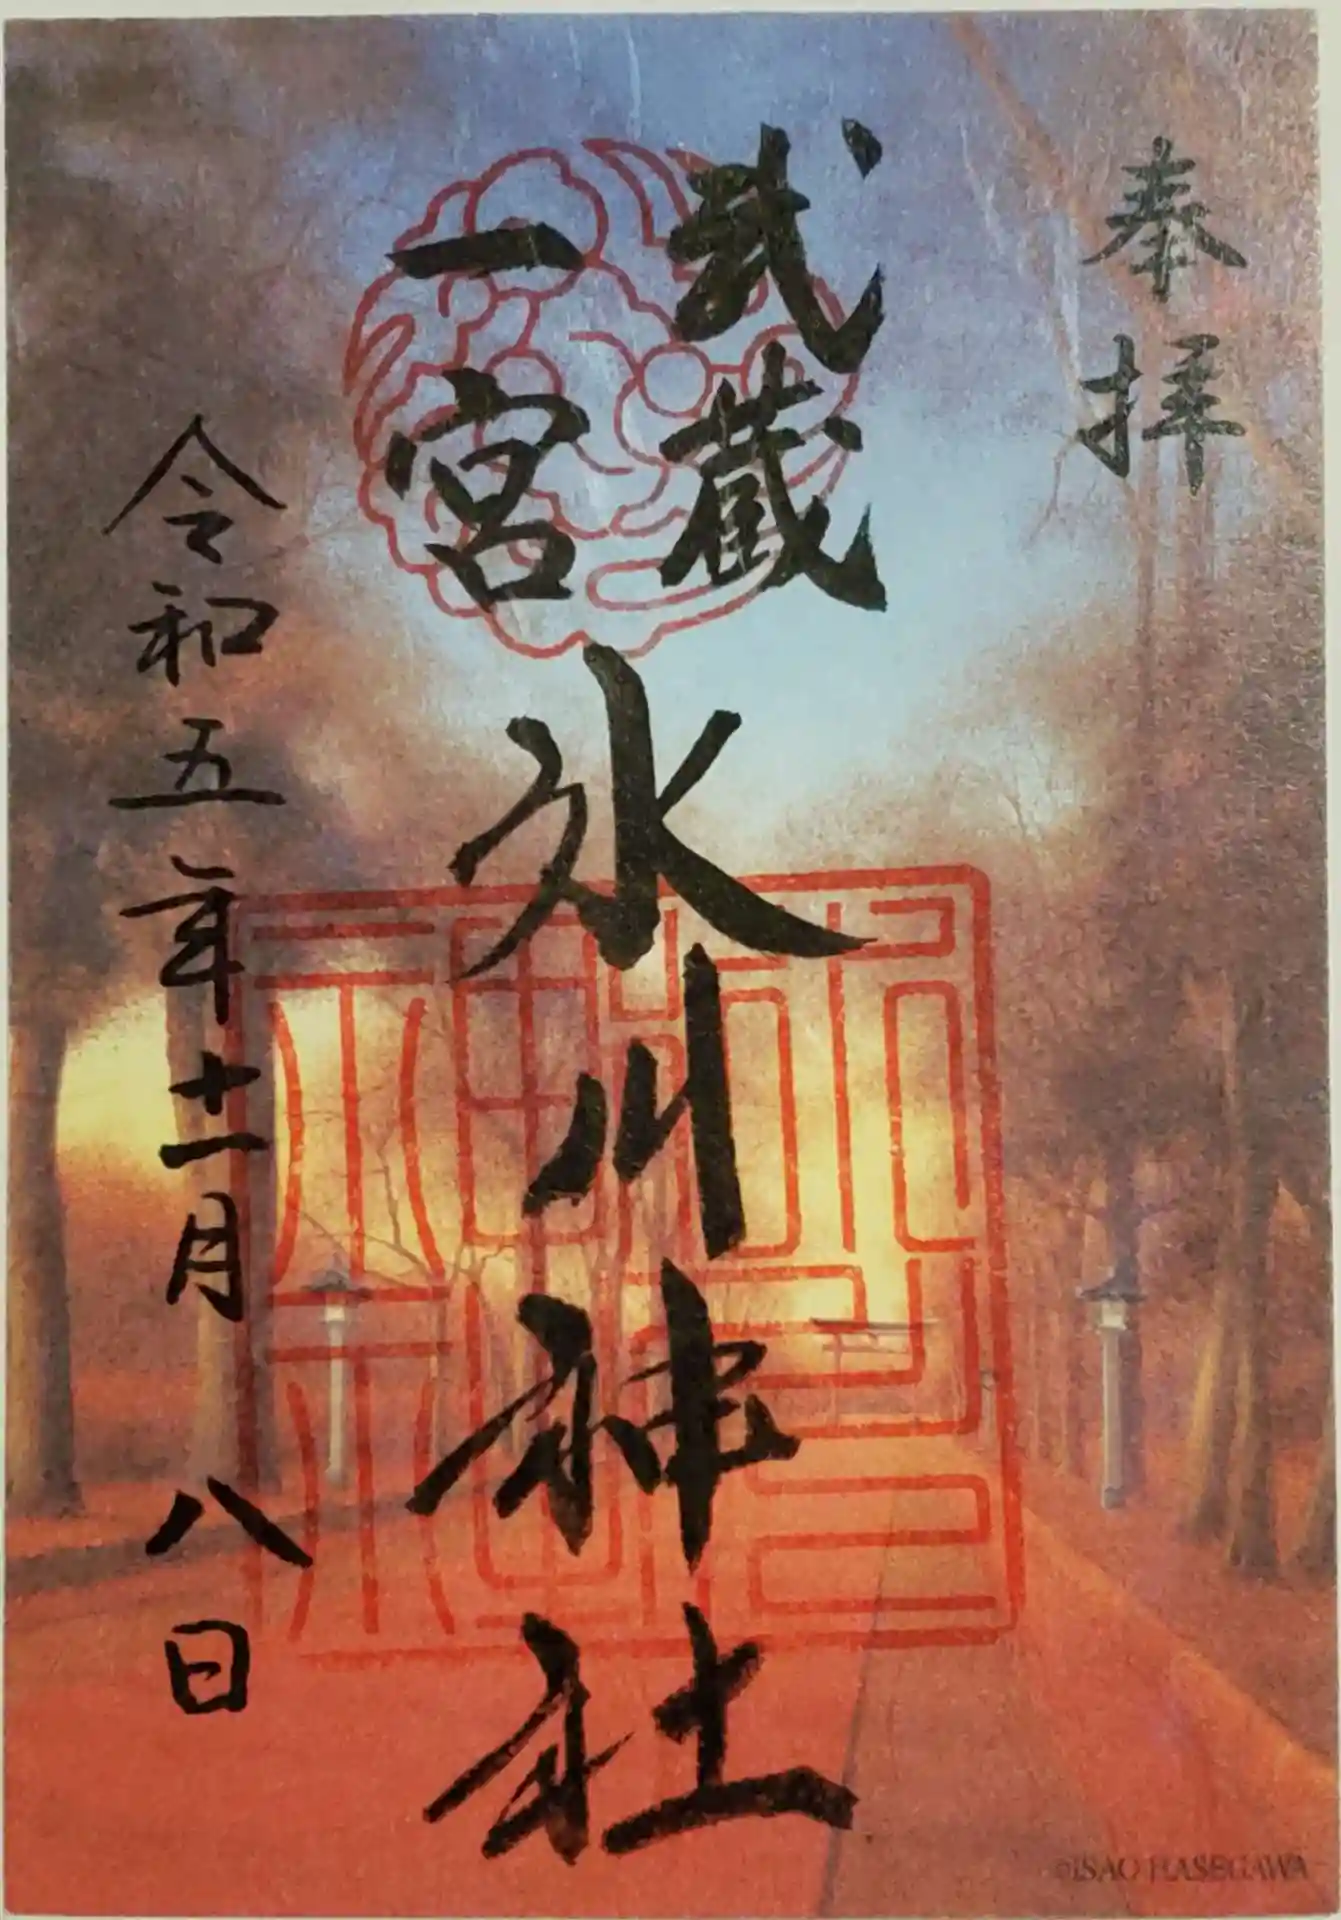 奉拝
武蔵
一宮
氷川神社
令和五年十一月八日
©ISAO HASEGAWA